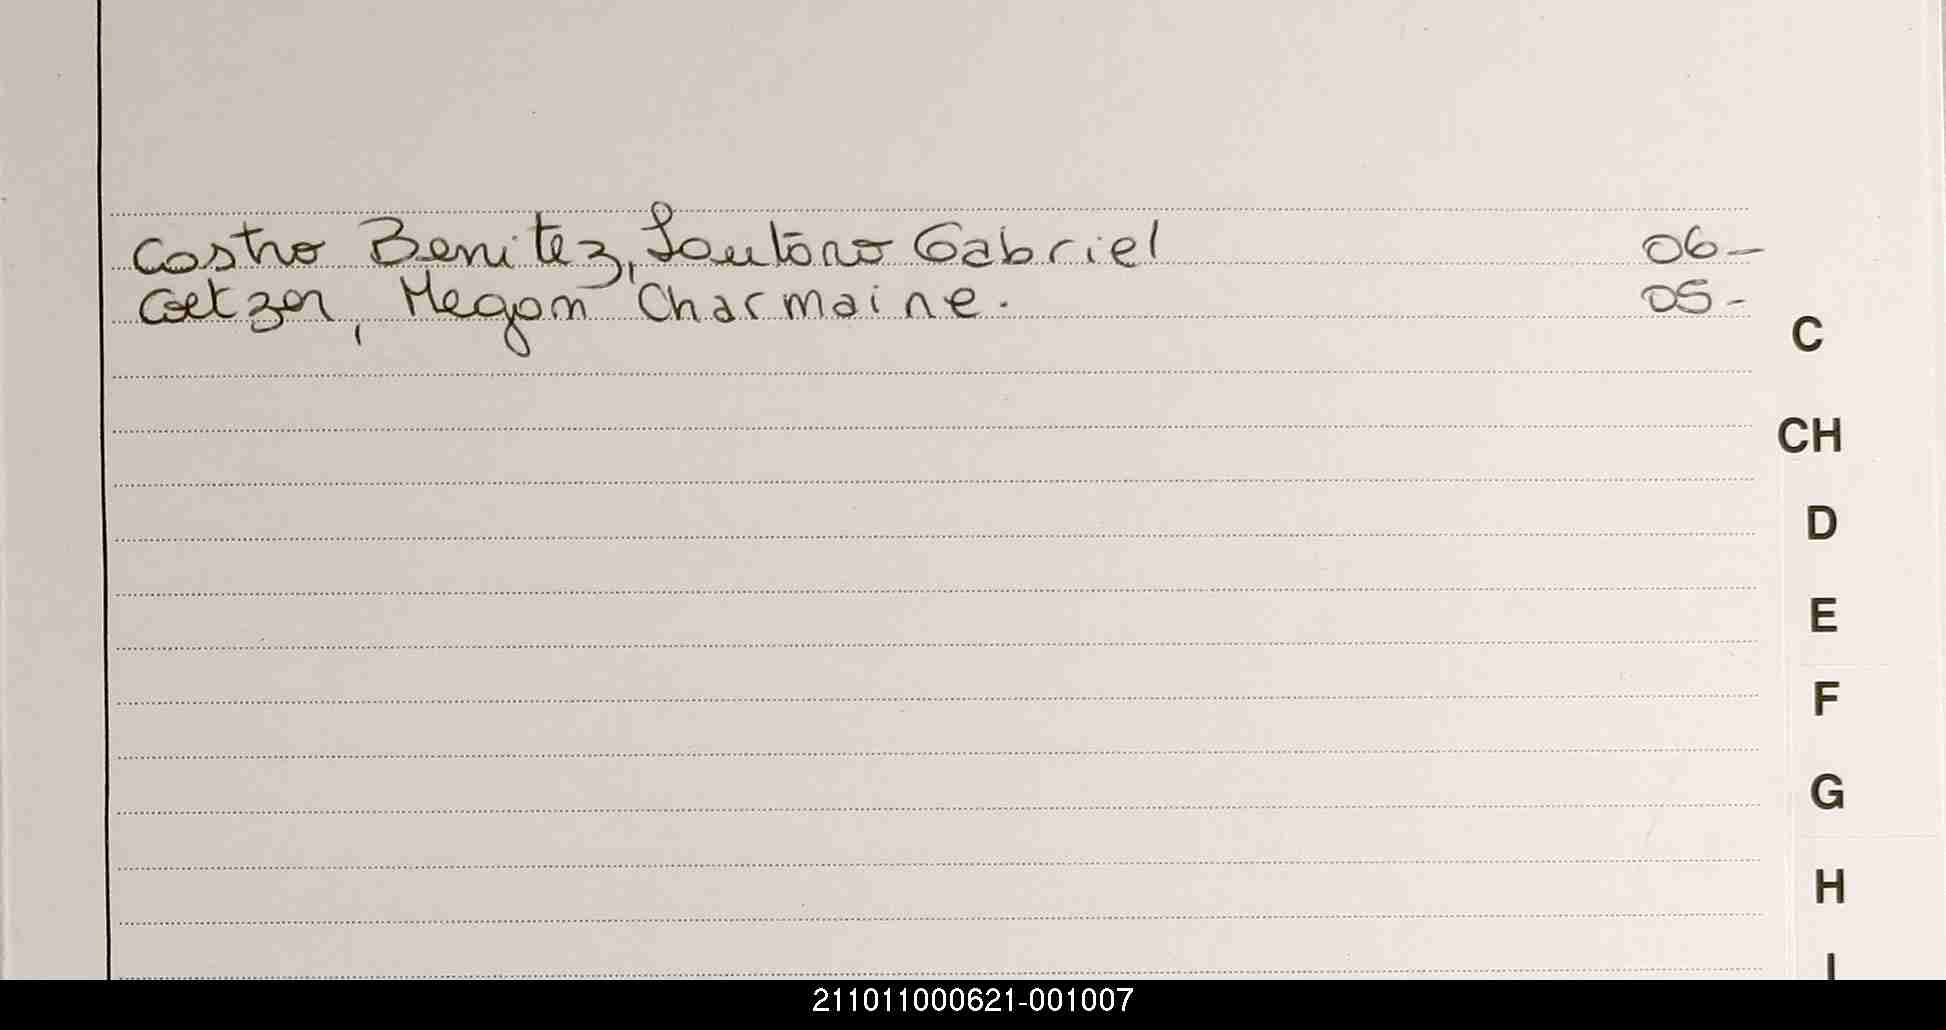 Castro Benitez, Lautaro Gabriel 06-
Coetzer, Megan Charmaine. 05-
C
CH
D
E
F
G
H
I
211011000621-001007